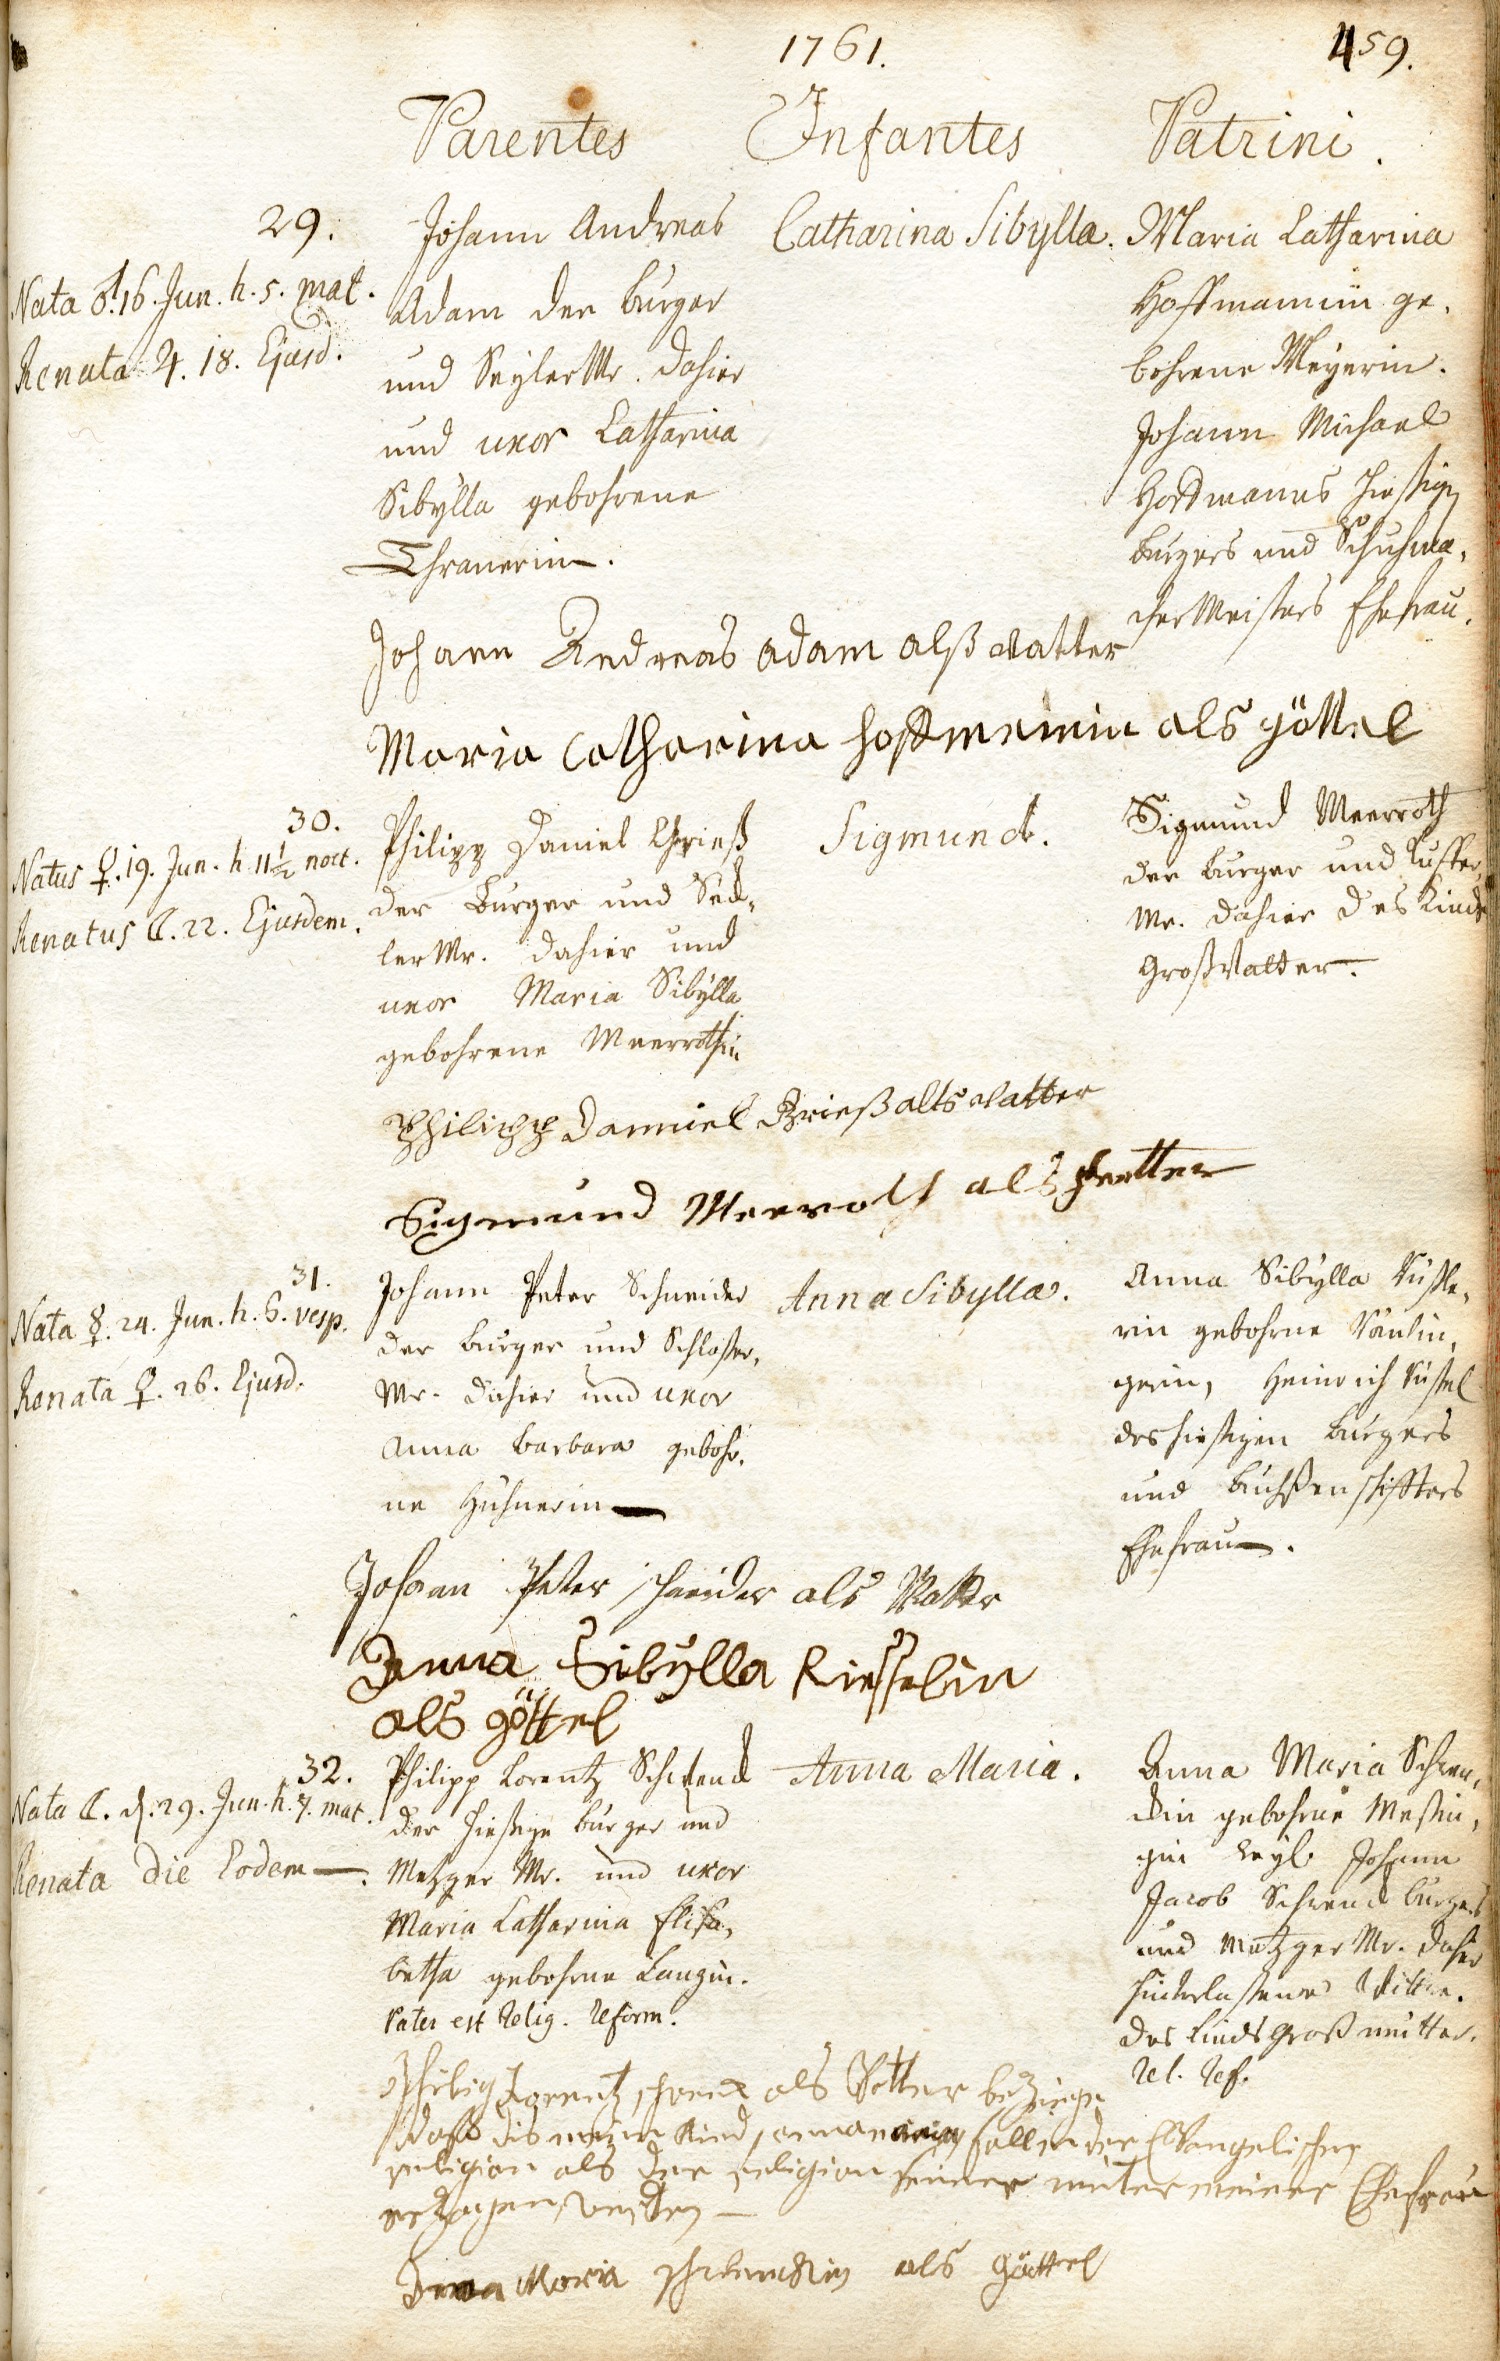 1761.
459.
Parentes Infantes Patrini.
29.
Nata ♂. 16. Jun. h. 5. mat.
Renata ♃. 18. Ejusd.
Johann Andreas
Adam der burger
und Seyler Mr. dahier
und uxor Catharina
Sibylla gebohrene
Thranerin.
Catharina Sibylla.
Maria Catharina
Hoffmannin ge,
bohrene Meyerin.
Johann Michael
Hoffmanns hießigen
burgers und Schuhma,
cher Meisters Ehefrau.
Johann Andreas adam alß vatter
Maria Catharina hoffmenin als göttel
30.
Natus ♀. 19. Jun. h. 11½ noct.
Renatus ☾. 22. Ejusdem.
Philipp Daniel Grieß
der Burger und Säd,
ler Mr. dahier und
uxor Maria Sibylla
gebohrene Meerrothin
Sigmund.
Sigmund Meerroth
der burger und Kuffer
Mr. dahier des Kinds
Großvatter.
Philipp Danniel Grieß alts vatter
Sigmund Meerroth als Petter
31.
Nata ☿. 24. Jun. h. 6. vesp.
Renata ♀. 26. Ejusd.
Johann Peter Schneider
der burger und Schlosser,
Mr. dahier und uxor
Anna Barbara gebohr,
ne Huhnerin
Anna Sibylla.
Anna Sibylla Kußle,
rin gebohrne
gerin, Heinrich Küßel
des hießigen burgers
und Buchßenschiffters
Ehefrau.
Johann Peter schneider als Vatter
Anna Sibylla Kiesselin
als göttel
32.
Nata ☾. d. 29. Jun. h. 7. mat.
Renata die Eodem.
Philipp Lorentz Schwend
der hießige burger und
Metzger Mr. und uxor
Maria Catharina Elisa,
betha gebohrne Langin.
Pater est Relig. Reform.
Anna Maria.
Anna Maria Schwen,
din gebohrne Meßin,
gin weyl. Johann
Jacob Schwend burgers
und Metzger Mr. dahier
hinterlassene Wittwe.
des Kinds Großmutter.
Rel. Ref.
Philip Lorentz schwent als Vatter bezeuge
daß dis mein Kind, anna maria soll in der Evangelischen
religion als der religion seiner muter meiner Ehefrau
erzogen werden
Anna Maria schwendin als Göttel